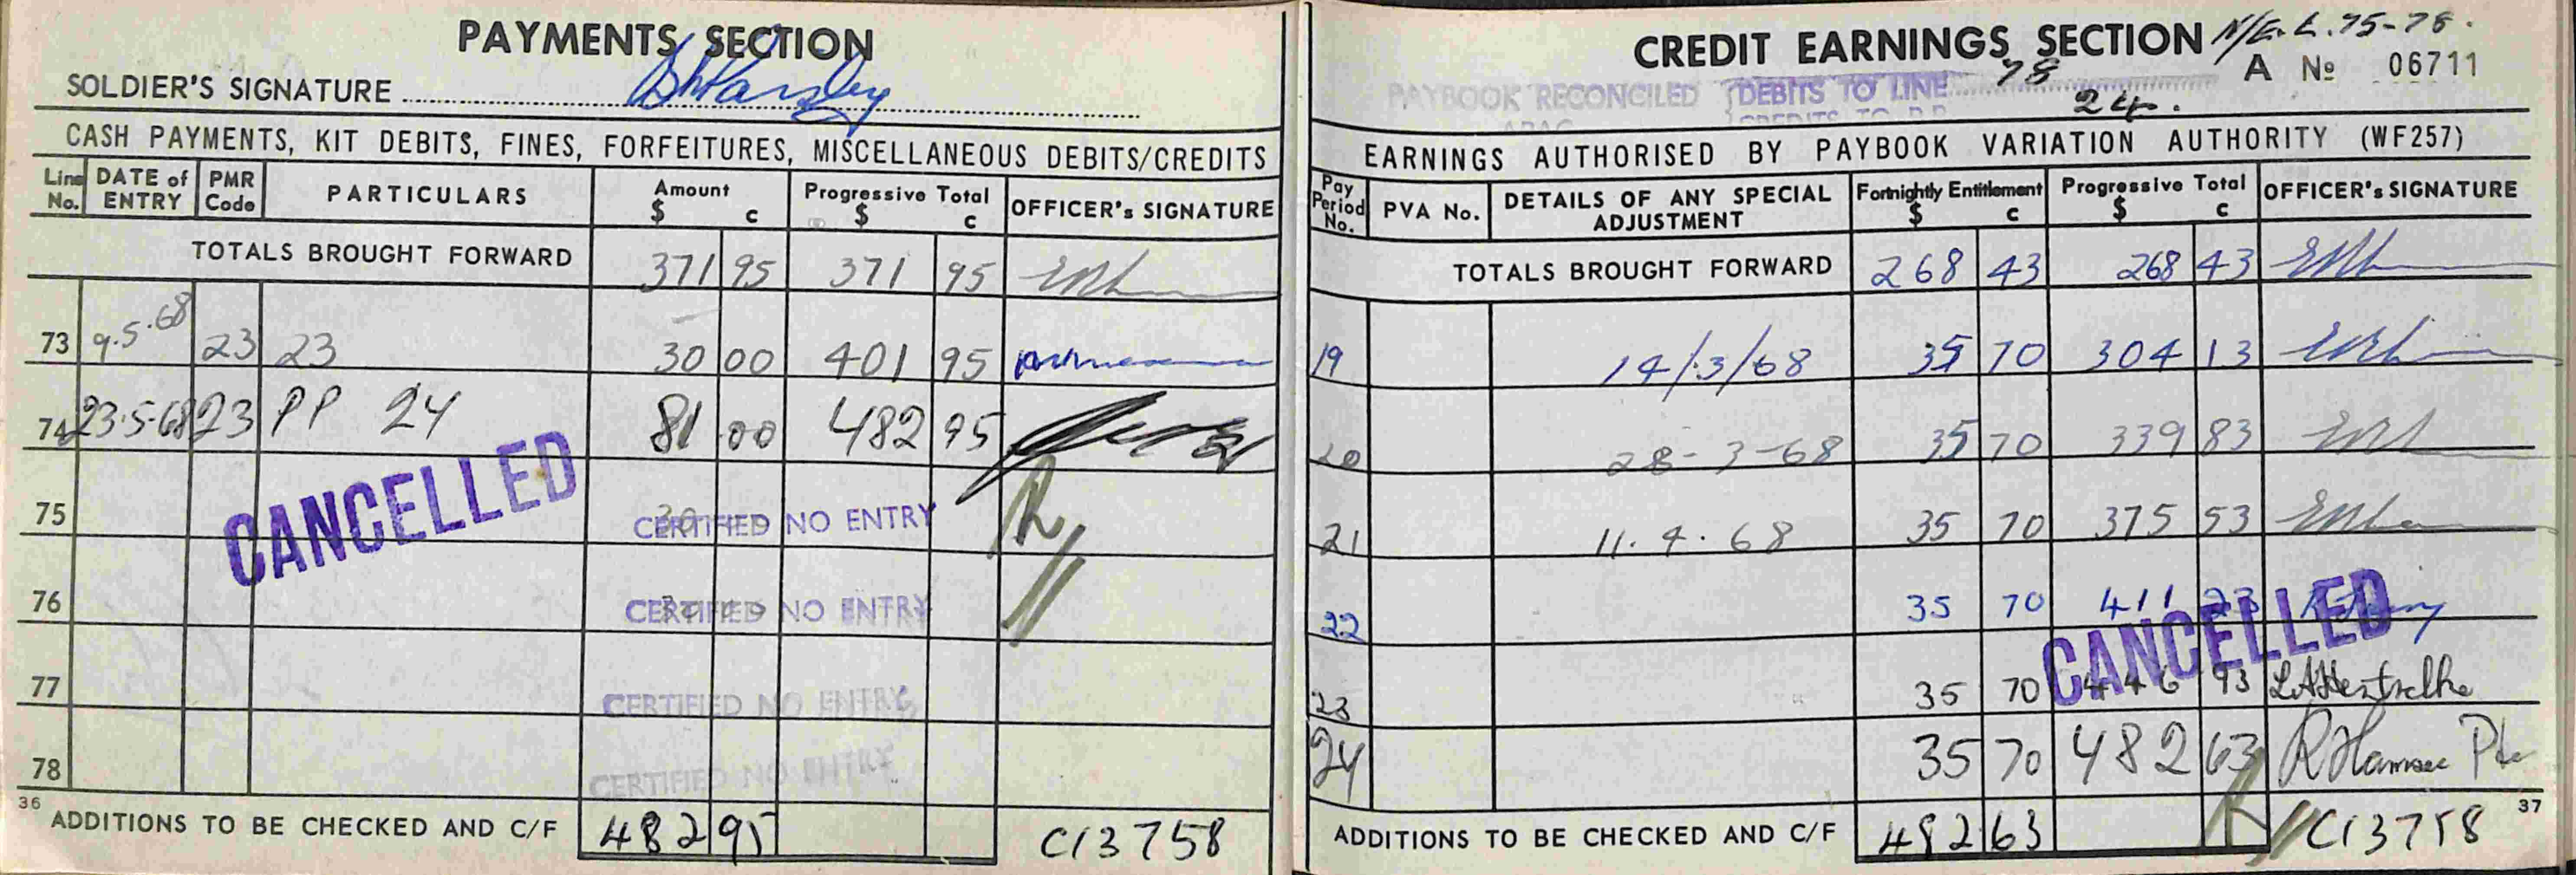 PAYMENTS SECTION
SOLDIER'S SIGNATURE
CASH PAYMENTS, KIT DEBITS, FINES, FORFEITURES, MISCELLANEOUS DEBITS/CREDITS
Line No. DATE of ENTRY PMR Code PARTICULARS Amount $ c Progressive Total $ c OFFICER's SIGNATURE
TOTALS BROUGHT FORWARD 371 95 371 95
73 9.5.68 23 23 30 00 401 95
74 23.5.68 23 PP 24 81 00 482 95
CANCELLED
75 CERTIFIED NO ENTRY
76 CERTIFIED NO ENTRY
77 CERTIFIED NO ENTRY
78 CERTIFIED NO ENTRY
36 ADDITIONS TO BE CHECKED AND C/F 482 95 C13758
CREDIT EARNINGS SECTION 75-78.
A № 06711
PAYBOOK RECONCILED DEBITS TO LINE 78
24.
EARNINGS AUTHORISED BY PAYBOOK VARIATION AUTHORITY (WF257)
Pay Period No. PVA No. DETAILS OF ANY SPECIAL ADJUSTMENT Fortnightly Entitlement $ c Progressive Total $ c OFFICER's SIGNATURE
TOTALS BROUGHT FORWARD 268 43 268 43
19 14/3/68 35 70 304 13
20 28-3-68 35 70 339 83
21 11.4.68 35 70 375 53
22 35 70 411 23
CANCELLED
23 35 70 446 93
24 35 70 482 63
ADDITIONS TO BE CHECKED AND C/F 482 63 C13758 37